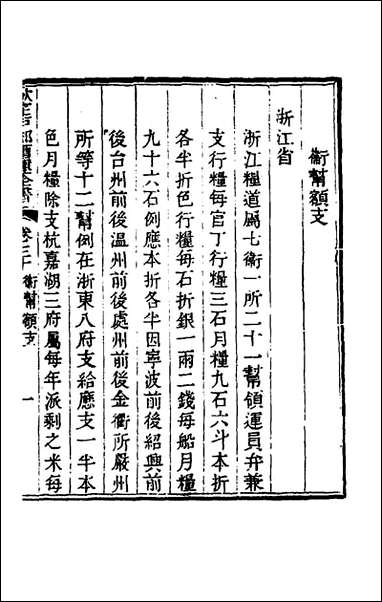 衛幫額支
浙江省
浙江糧道屬七衛一所二十一幫領運員弁兼
支行糧每官丁行糧三石月糧九石六斗本折
各半折色行糧每石折銀一兩二錢每船月糧
九十六石例應本折各半因寧波前後紹興前
後台州前後溫州前後處州前後金衢所嚴州
所等十二幫例在浙東八府支給應支一半本
色月糧除支杭嘉湖三府屬每年派剩之米每
欽定戶部漕運全書 卷三十 衛幫額支 一